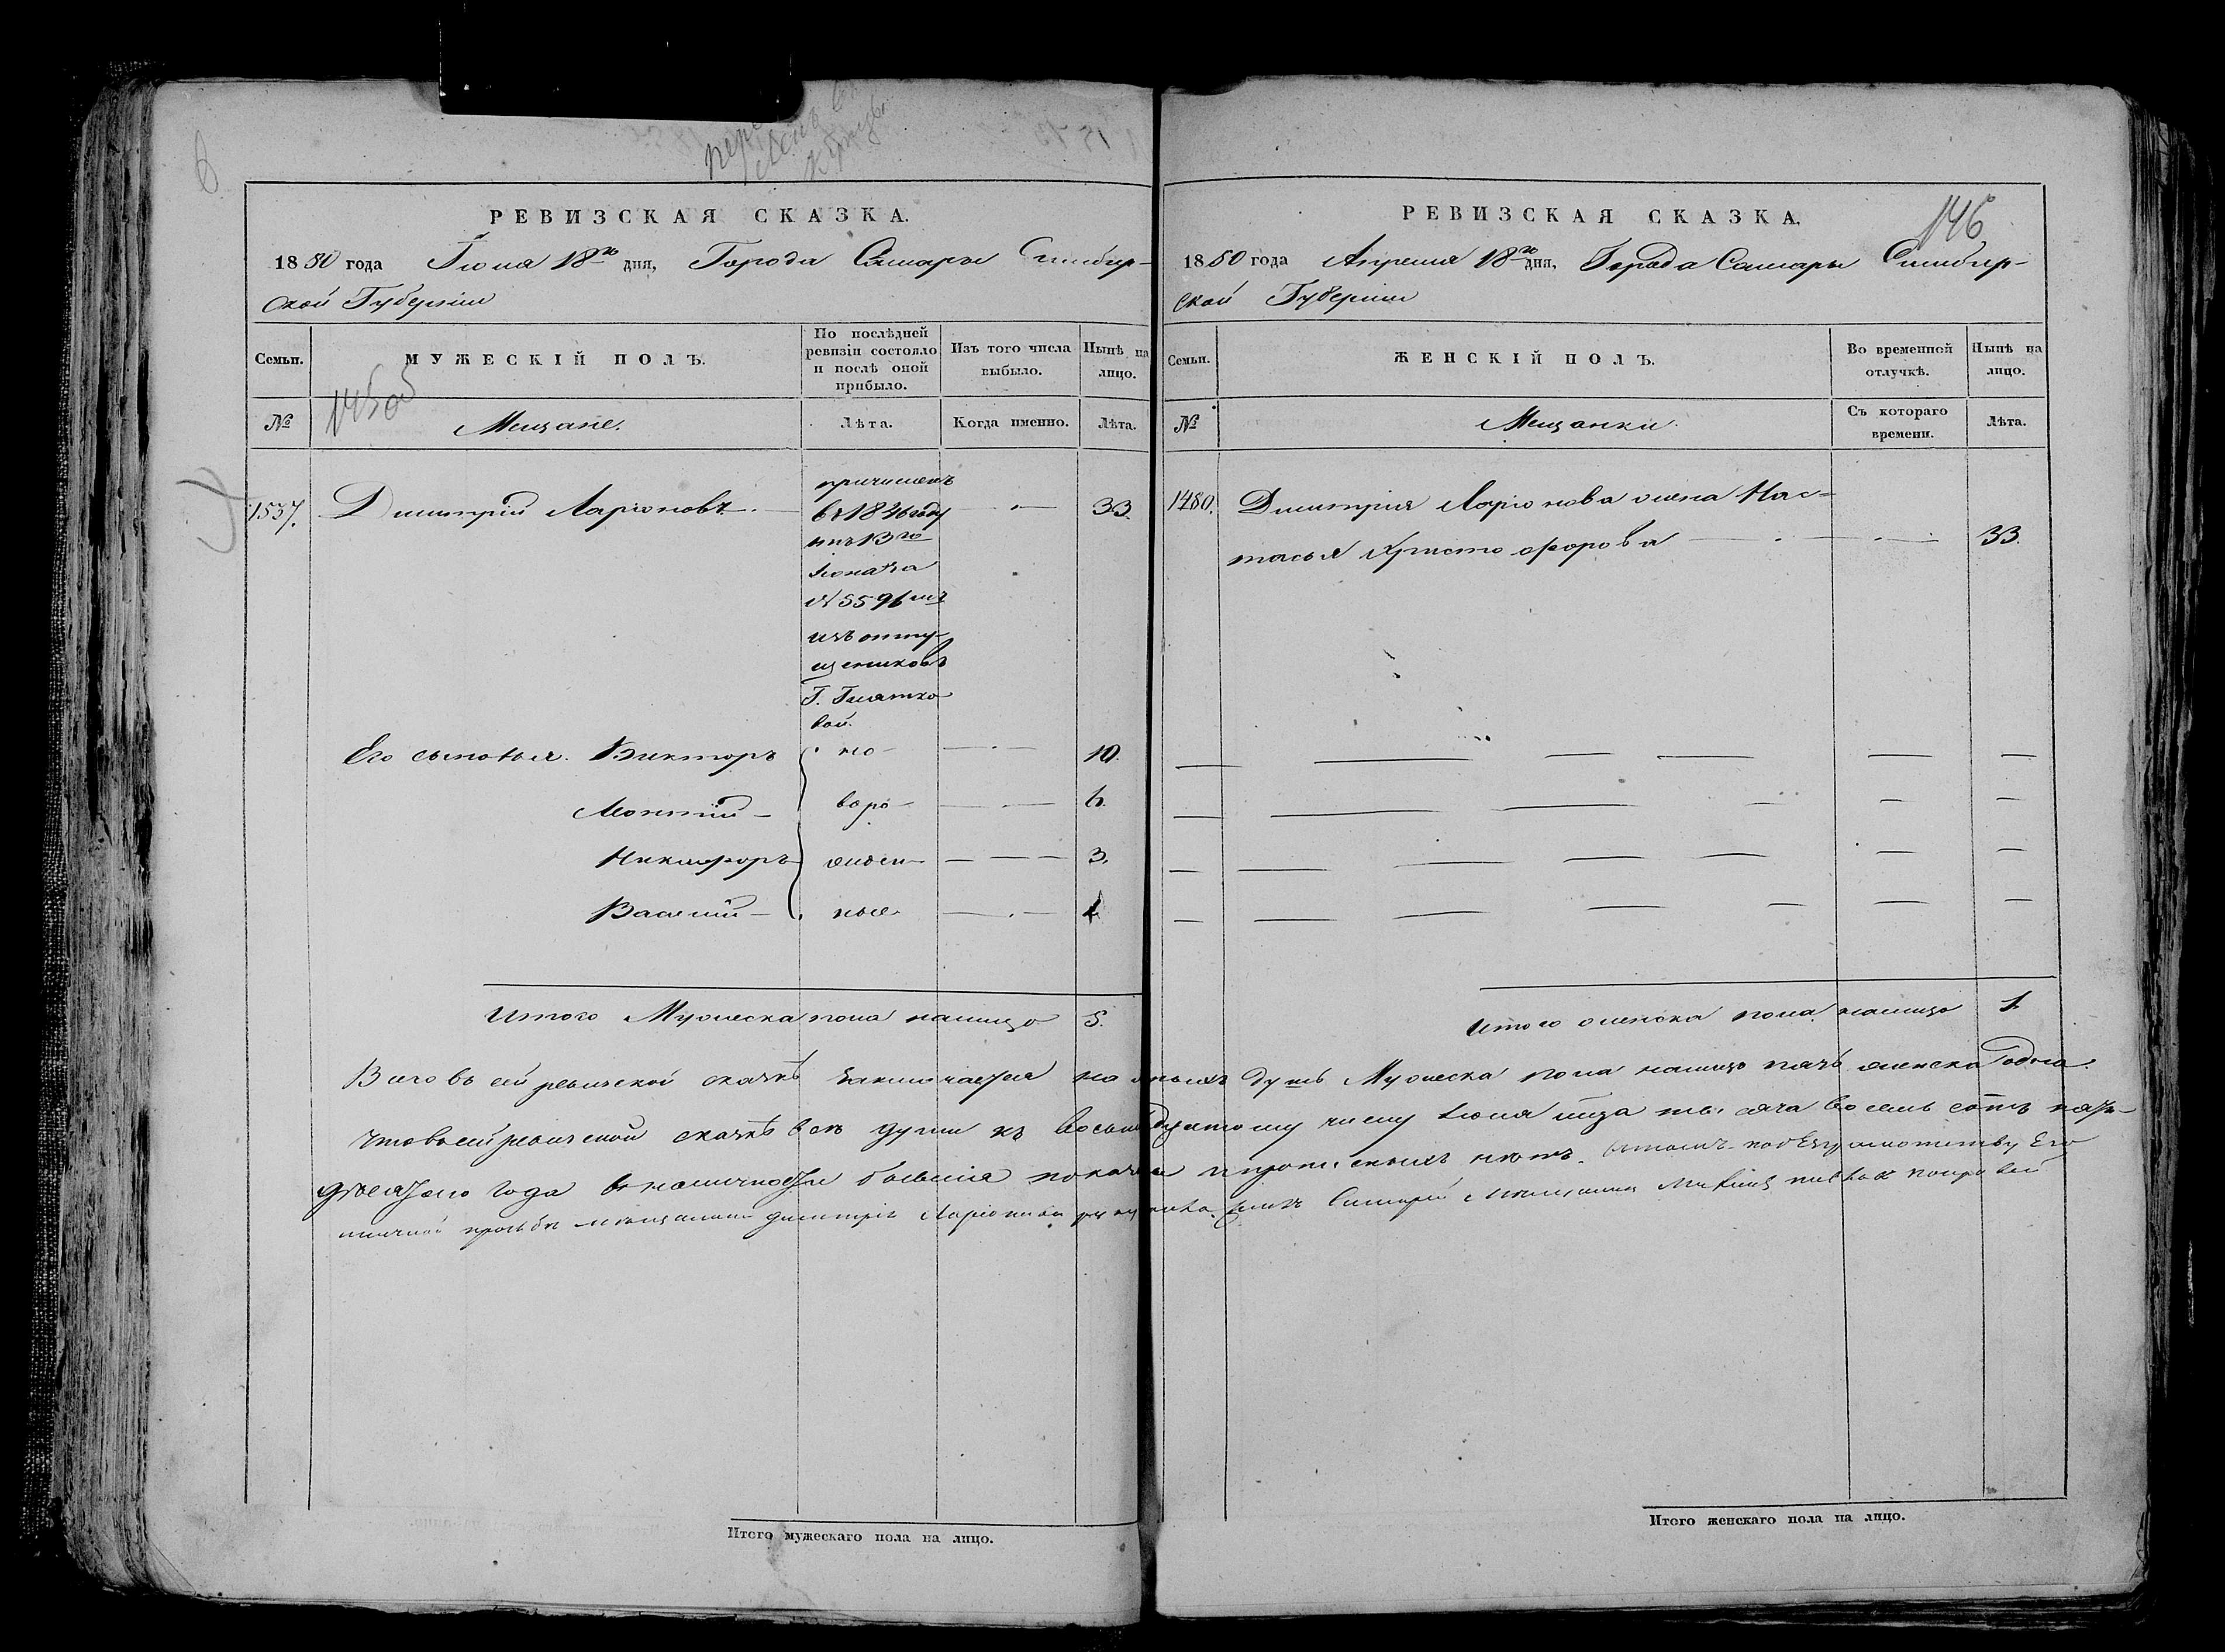 РЕВИЗСКАЯ СКАЗКА.
1850 года Июня 18го дня, Города Самары Симбир-
ской Губернии
Семьи.
МУЖЕСКІЙ ПОЛЪ.
По послѣдней ревизіи состояло и послѣ оной прибыло.
Изъ того числа выбыло.
Нынѣ на лицо.
№
Мещане.
Лѣта.
Когда именно.
Лѣта.
1537. Димитрій Ларіоновъ 33.
причисленъ
въ 1846 году
изъ отпу-
щениковъ
Его сыновья. Викторъ но- 10.
Леонтій воро- 6.
Никифоръ жден- 3.
Василій ные 1
Итого Мужеска пола налицо 5.
Итого мужескаго пола на лицо.
146
РЕВИЗСКАЯ СКАЗКА.
1850 года Апреля 18го дня, Города Самары Симбир-
ской Губернии
Семьи.
ЖЕНСКІЙ ПОЛЪ.
Во временной отлучкѣ.
Нынѣ на лицо.
№
Мещанки.
Съ котораго времени.
Лѣта.
1480. Димитрия Ларионова жена Нас-
тасья Христофорова 33.
Итого женска пола налицо 1.
Всего въ сей ревизской сказкѣ заключается наличныхъ душъ Мужеска пола налицо пять женска одна.
Что въ сей ревизской сказкѣ все души къ восьмнадцатому числу Июня тысяча восемь сотъ пять-
десятого года въ наличности бывшие показаны и прописныхъ нетъ.
личной прозьбе мещанина Димитрия Ларионова
Итого женскаго пола на лицо.